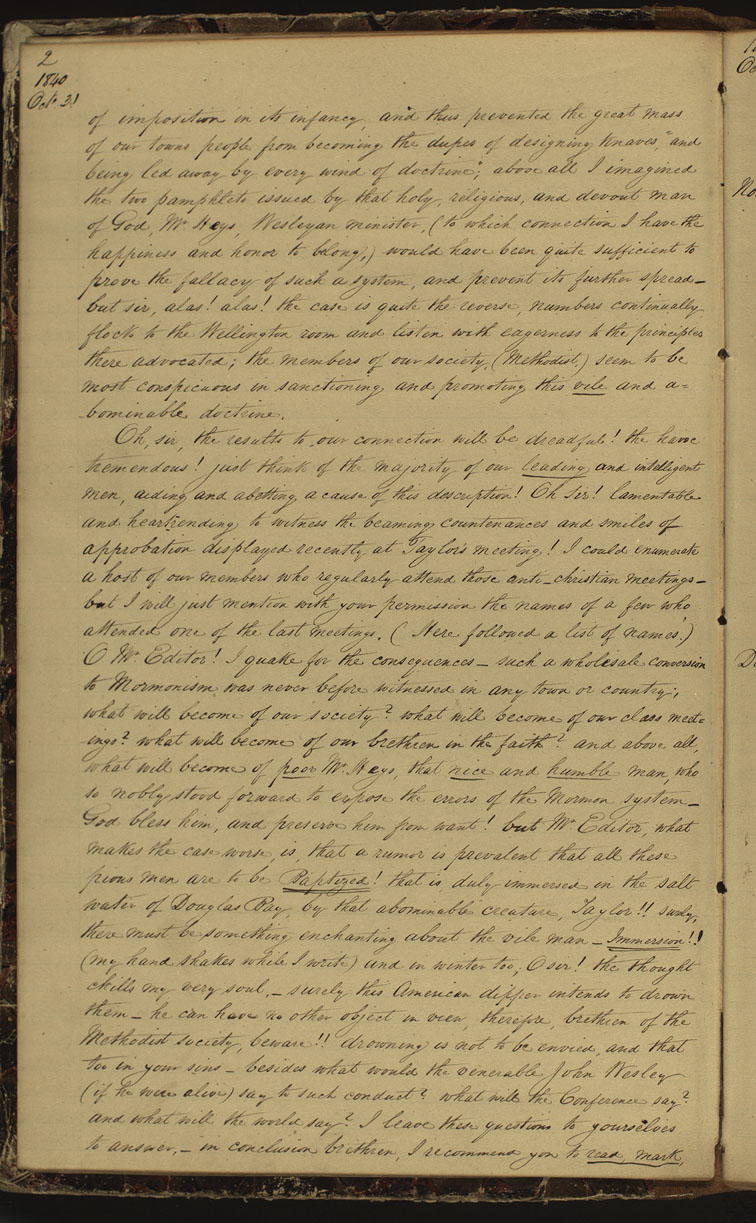 2
1840
Oct. 31
of imposition in its infancy, and thus prevented the great mass
of our towns people from becoming the dupes of designing knaves, "and
being led away by every wind of doctrine"; above all I imagined
the two pamphlets issued by that holy, religious, and devout man
of God, Mr. Heys, Wesleyan minister, (to which connection I have the
happiness and honor to belong,) would have been quite sufficient to
prove the fallacy of such a system, and prevent its further spread—
but sir, alas! alas! the case is quite the reverse, numbers continually
flock to the Wellington room and listen with eagerness to the principles
there advocated; the members of our society, (Methodist,) seem to be
most conspicuous in sanctioning and promoting this vile and a=
-bominable doctrine.
Oh, sir, the results to our connection will be dreadful! the havoc
tremendous! just think of the majority of our leading and intelligent
men, aiding and abetting a cause of this description! Oh Sir! lamentable
and heartrending to witness the beaming countenances and smiles of
approbation displayed recently at Taylor's meeting! I could enumerate
a host of our members who regularly attend those anti-christian meetings—
but I will just mention with your permission the names of a few who
attended one of the last meetings. (Here followed a list of names.)
O Mr. Editor! I quake for the consequences— such a wholesale conversion
to Mormonism was never before witnessed in any town or country;
what will become of our society? what will become of our class meet=
-ings? what will become of our brethren in the faith? and above all,
what will become of poor Mr. Heys, that nice and humble man, who
so nobly stood forward to expose the errors of the Mormon system—
God bless him, and preserve him from want! but Mr. Editor, what
makes the case worse, is, that a rumor is prevalent that all these
pious men are to be Baptized! that is, duly immersed in the salt
water of Douglas Bay, by that abominable creature, Taylor!! surely,
there must be something enchanting about the vile man— Immersion!!
(my hand shakes while I write) and in winter too, O sir! the thought
chills my very soul,— surely this American dipper intends to drown
them— he can have no other object in view, therefore, brethren of the
Methodist society, beware!! drowning is not to be envied, and that
too in your sins— besides what would the venerable John Wesley
(if he were alive) say to such conduct? what will the Conference say?
and what will the world say? I leave these questions to yourselves
to answer,— in conclusion brethren, I recommend you to read, mark,